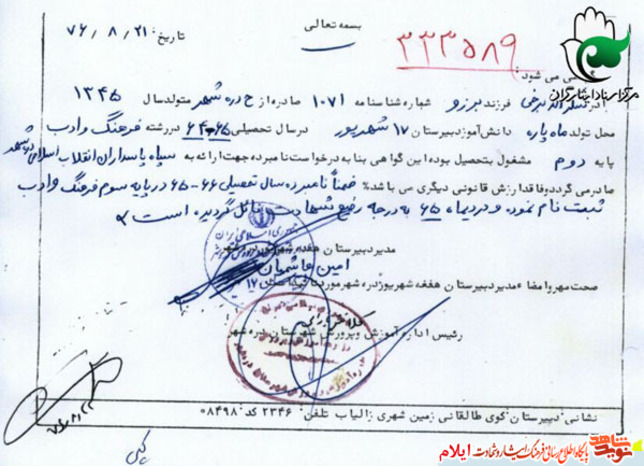 بسمه تعالی
تاریخ: ۷۶/۸/۲۱
۳۳۳۵۸۹
می شود:
فرزند برزو شماره شناسنامه ۱۰۷۱ صادره از دره شهر متولد سال ۱۳۴۵
محل تولد ماه پاره دانش آموز دبیرستان ۱۷ شهریور در سال تحصیلی ۶۵-۶۴ در رشته فرهنگ و ادب
پایه دوم مشغول بتحصیل بوده این گواهی بنا به درخواست نامبرده جهت ارائه به سپاه پاسداران انقلاب اسلامی دره شهر
صادر می گردد و فاقد ارزش قانونی دیگری می باشد. ضمناً نامبرده سال تحصیلی ۶۶-۶۵ در پایه سوم فرهنگ و ادب
ثبت نام نموده و در دیماه ۶۵ به درجه رفیع شهادت نائل گردیده است
مدیر دبیرستان هفده شهریور دره شهر
امین هاشمیان
صحت مهر و امضاء مدیر دبیرستان هفده شهریور دره شهر مورد تائید است
رئیس اداره آموزش و پرورش شهرستان دره شهر
نشانی: دبیرستان کوی طالقانی زمین شهری زالیاب تلفن: ۲۳۴۶ کد: ۰۸۴۹۸
مرکز اسناد ایثارگران
نوید شاهد
پایگاه اطلاع رسانی فرهنگ ایثار و شهادت ایلام